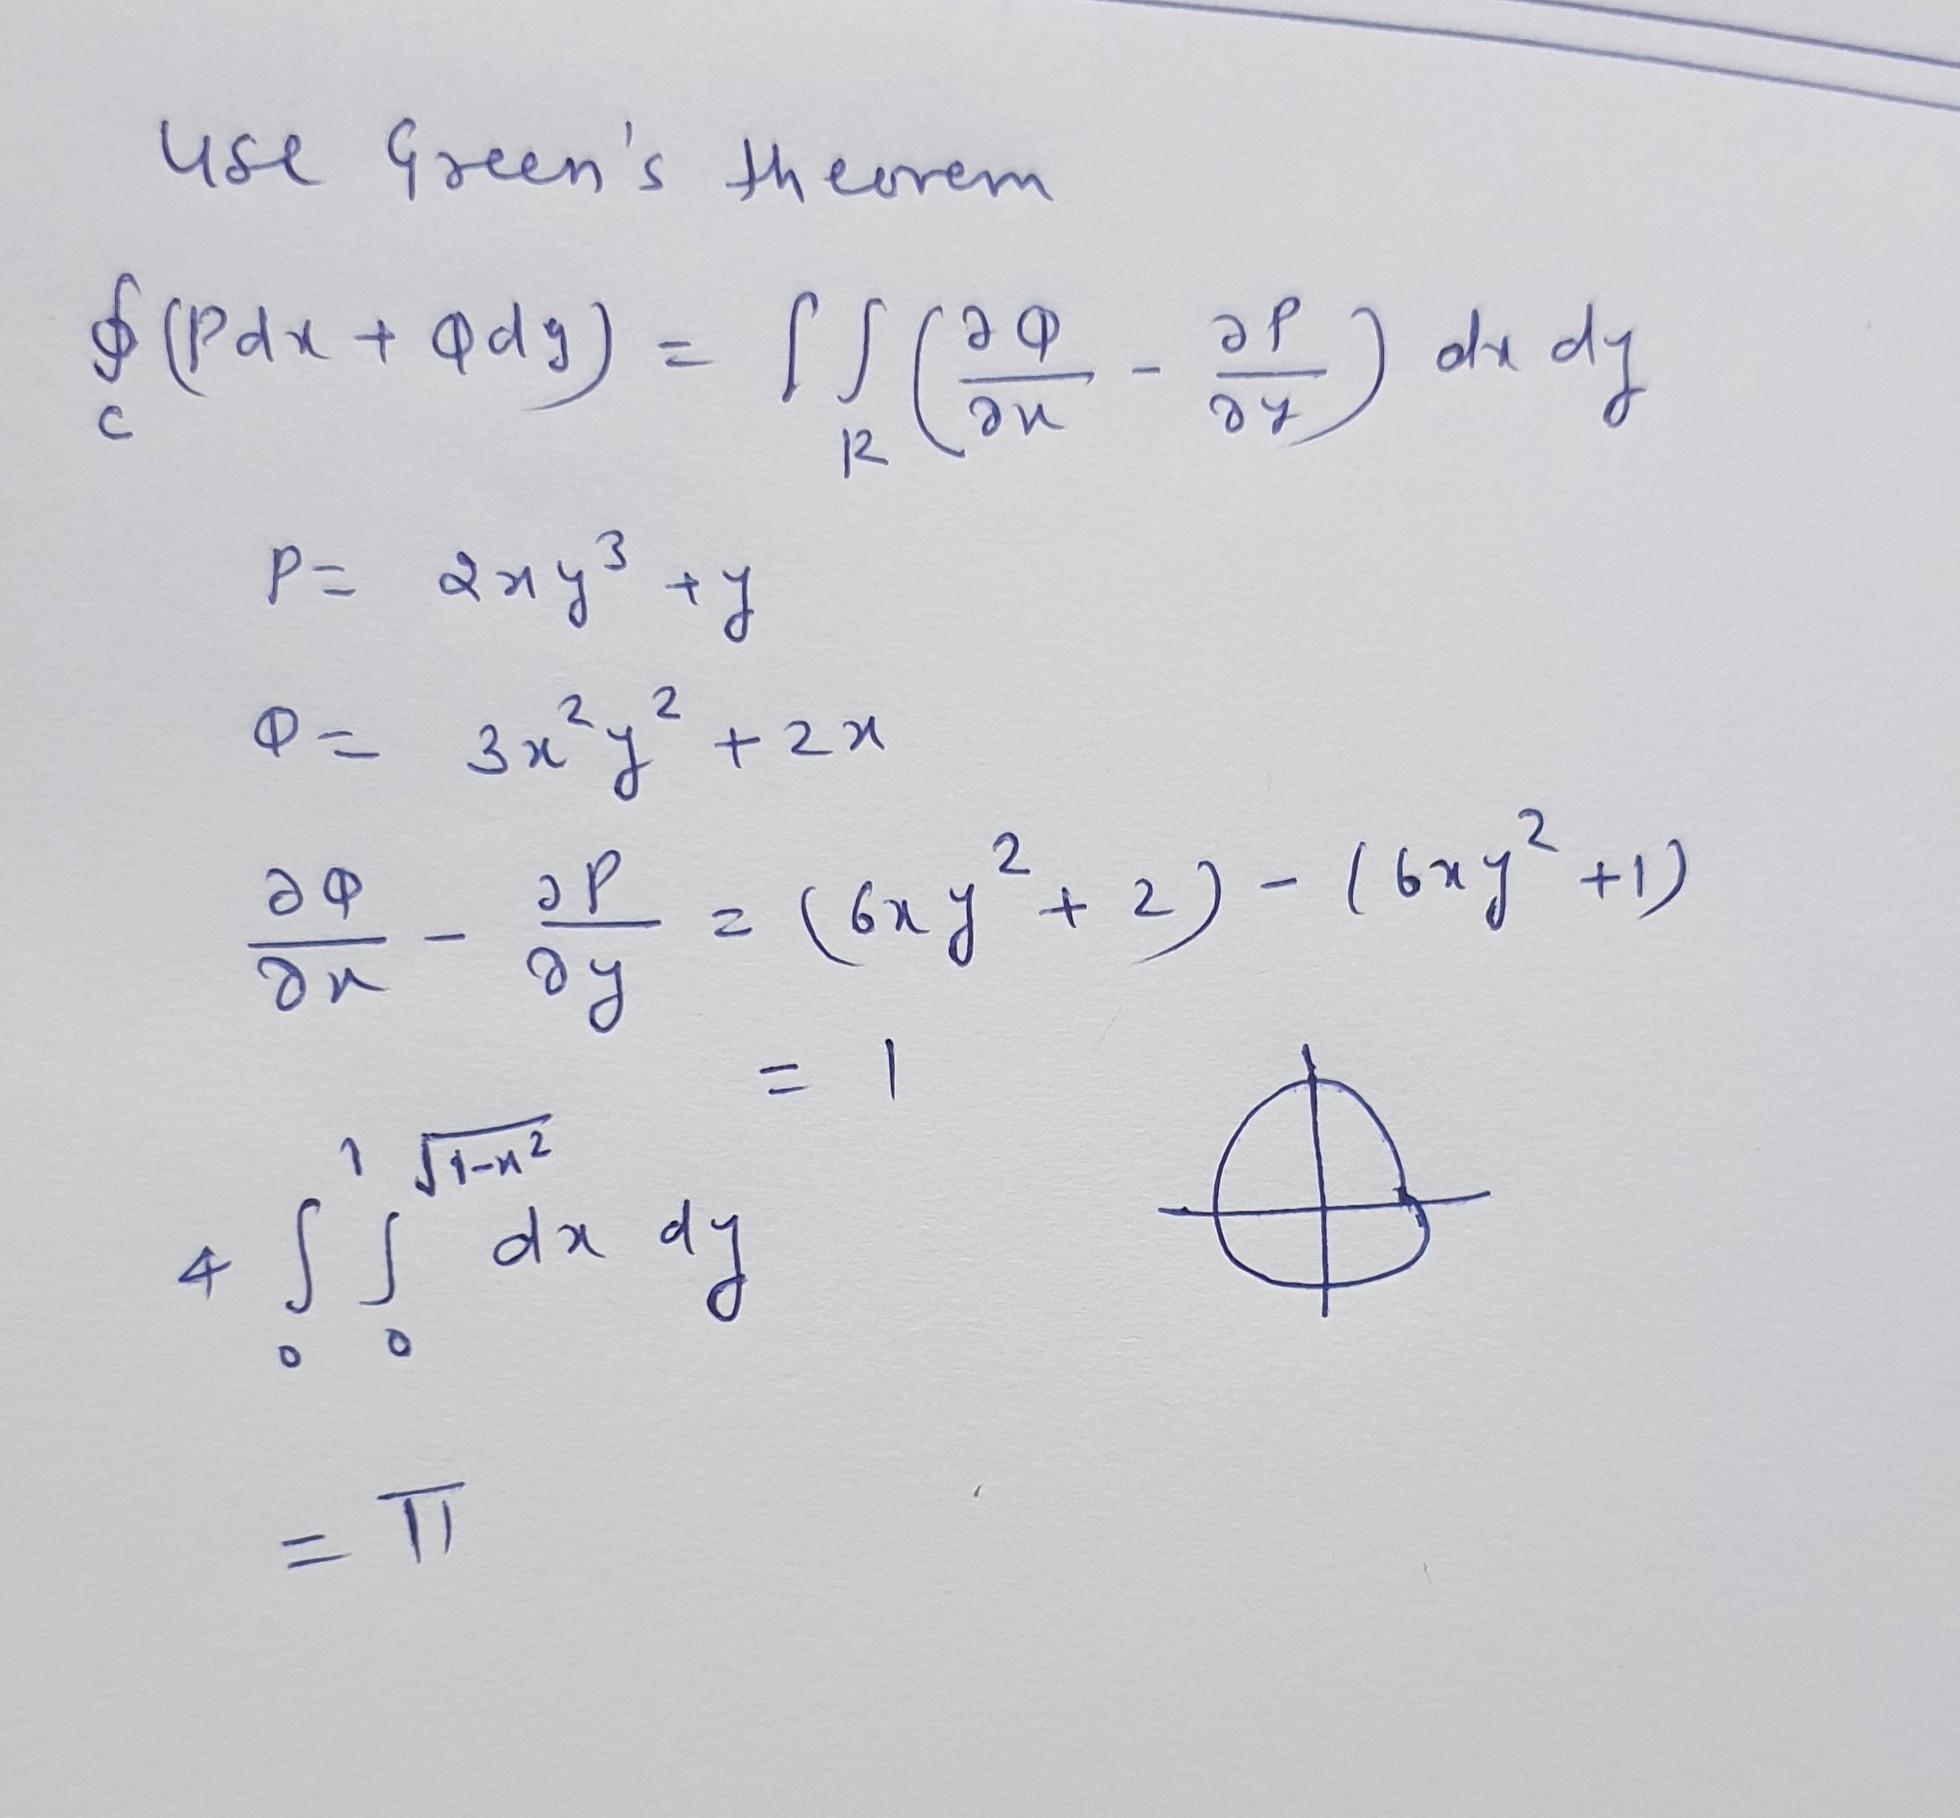 Use Green's theorem
∮_C (Pdx + Qdy) = ∫∫_R (∂Q/∂x - ∂P/∂y) dx dy
P = 2xy³ + y
Q = 3x²y² + 2x
∂Q/∂x - ∂P/∂y = (6xy² + 2) - (6xy² + 1)
= 1
4 ∫₀¹ ∫₀^√(1-x²) dx dy
= π